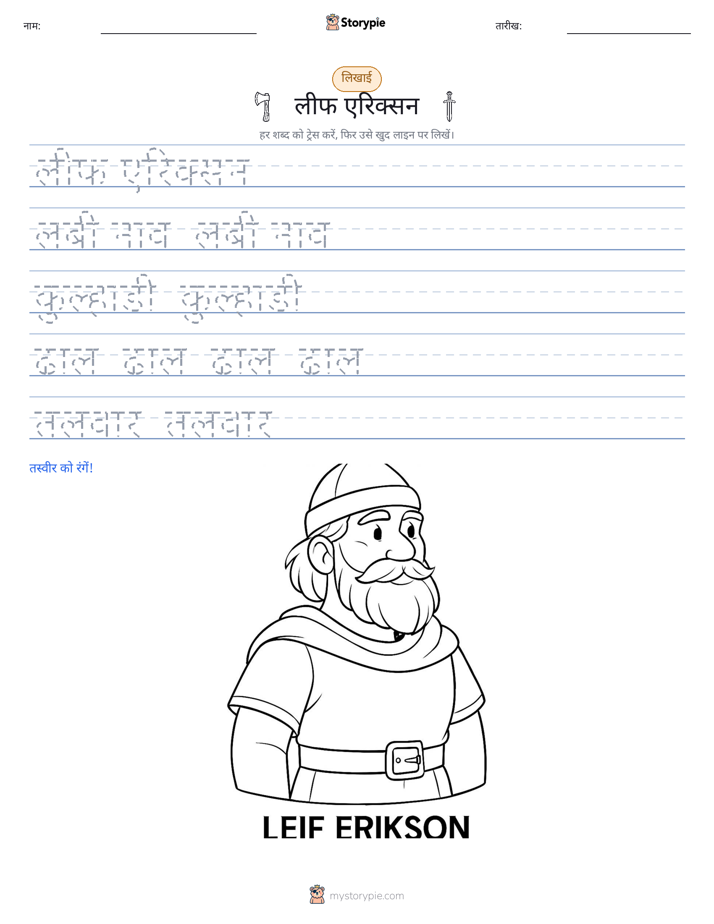 नाम:
Storypie
तारीख:
लिखाई
लीफ एरिक्सन
हर शब्द को ट्रेस करें, फिर उसे खुद लाइन पर लिखें।
लीफ एरिक्सन
लंबी नाव लंबी नाव
कुल्हाड़ी कुल्हाड़ी
ढाल ढाल ढाल ढाल
तलवार तलवार
तस्वीर को रंगें!
LEIF ERIKSON
mystorypie.com